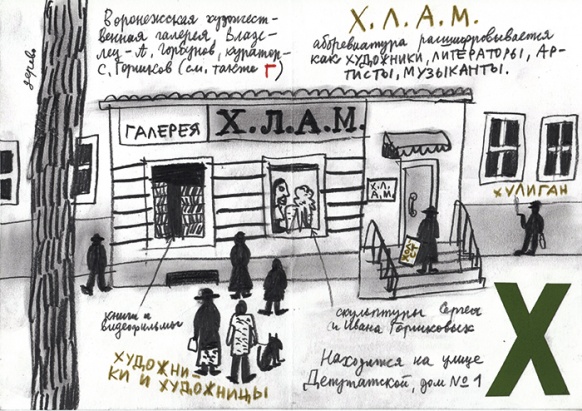 Воронежская художест-
венная галерея. Владе-
лец - А. Горбунов, куратор -
С. Горшков (см. также Г)
Х.Л.А.М.
аббревиатура расшифровывается
как ХУДОЖНИКИ, ЛИТЕРАТОРЫ, АР-
ТИСТЫ, МУЗЫКАНТЫ.
дерево
ГАЛЕРЕЯ Х.Л.А.М.
Х.Л.
А.М.
ХУЛИГАН
книги и
видеофильмы
скульптуры Сергея
и Ивана Горшковых
ХУДОЖНИ-
КИ И ХУДОЖНИЦЫ
Находится на улице
Депутатской, дом №1
Х